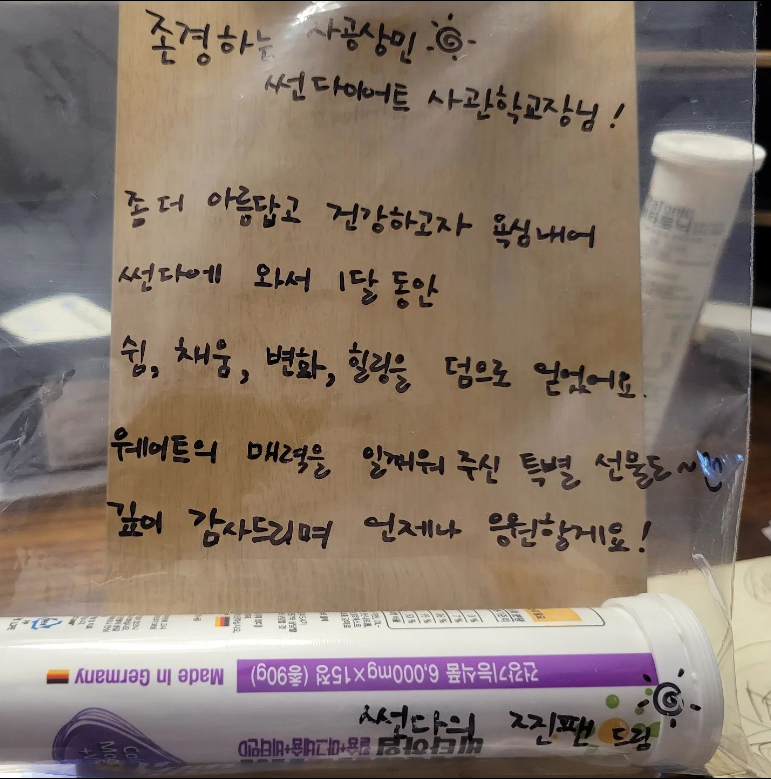 존경하는 사공상민
썬다이어트 사관학교장님!
좀 더 아름답고 건강하고자 욕심내어
썬다에 와서 1달 동안
쉼, 채움, 변화, 힐링을 덤으로 얻었어요.
웨이트의 매력을 일깨워 주신 특별 선물도~^^
깊이 감사드리며 언제나 응원할게요!
건강기능식품 6,000mg×15정 (총90g)
Made in Germany
썬다의 찐팬 드림
칼슘+마그네슘+비타민D